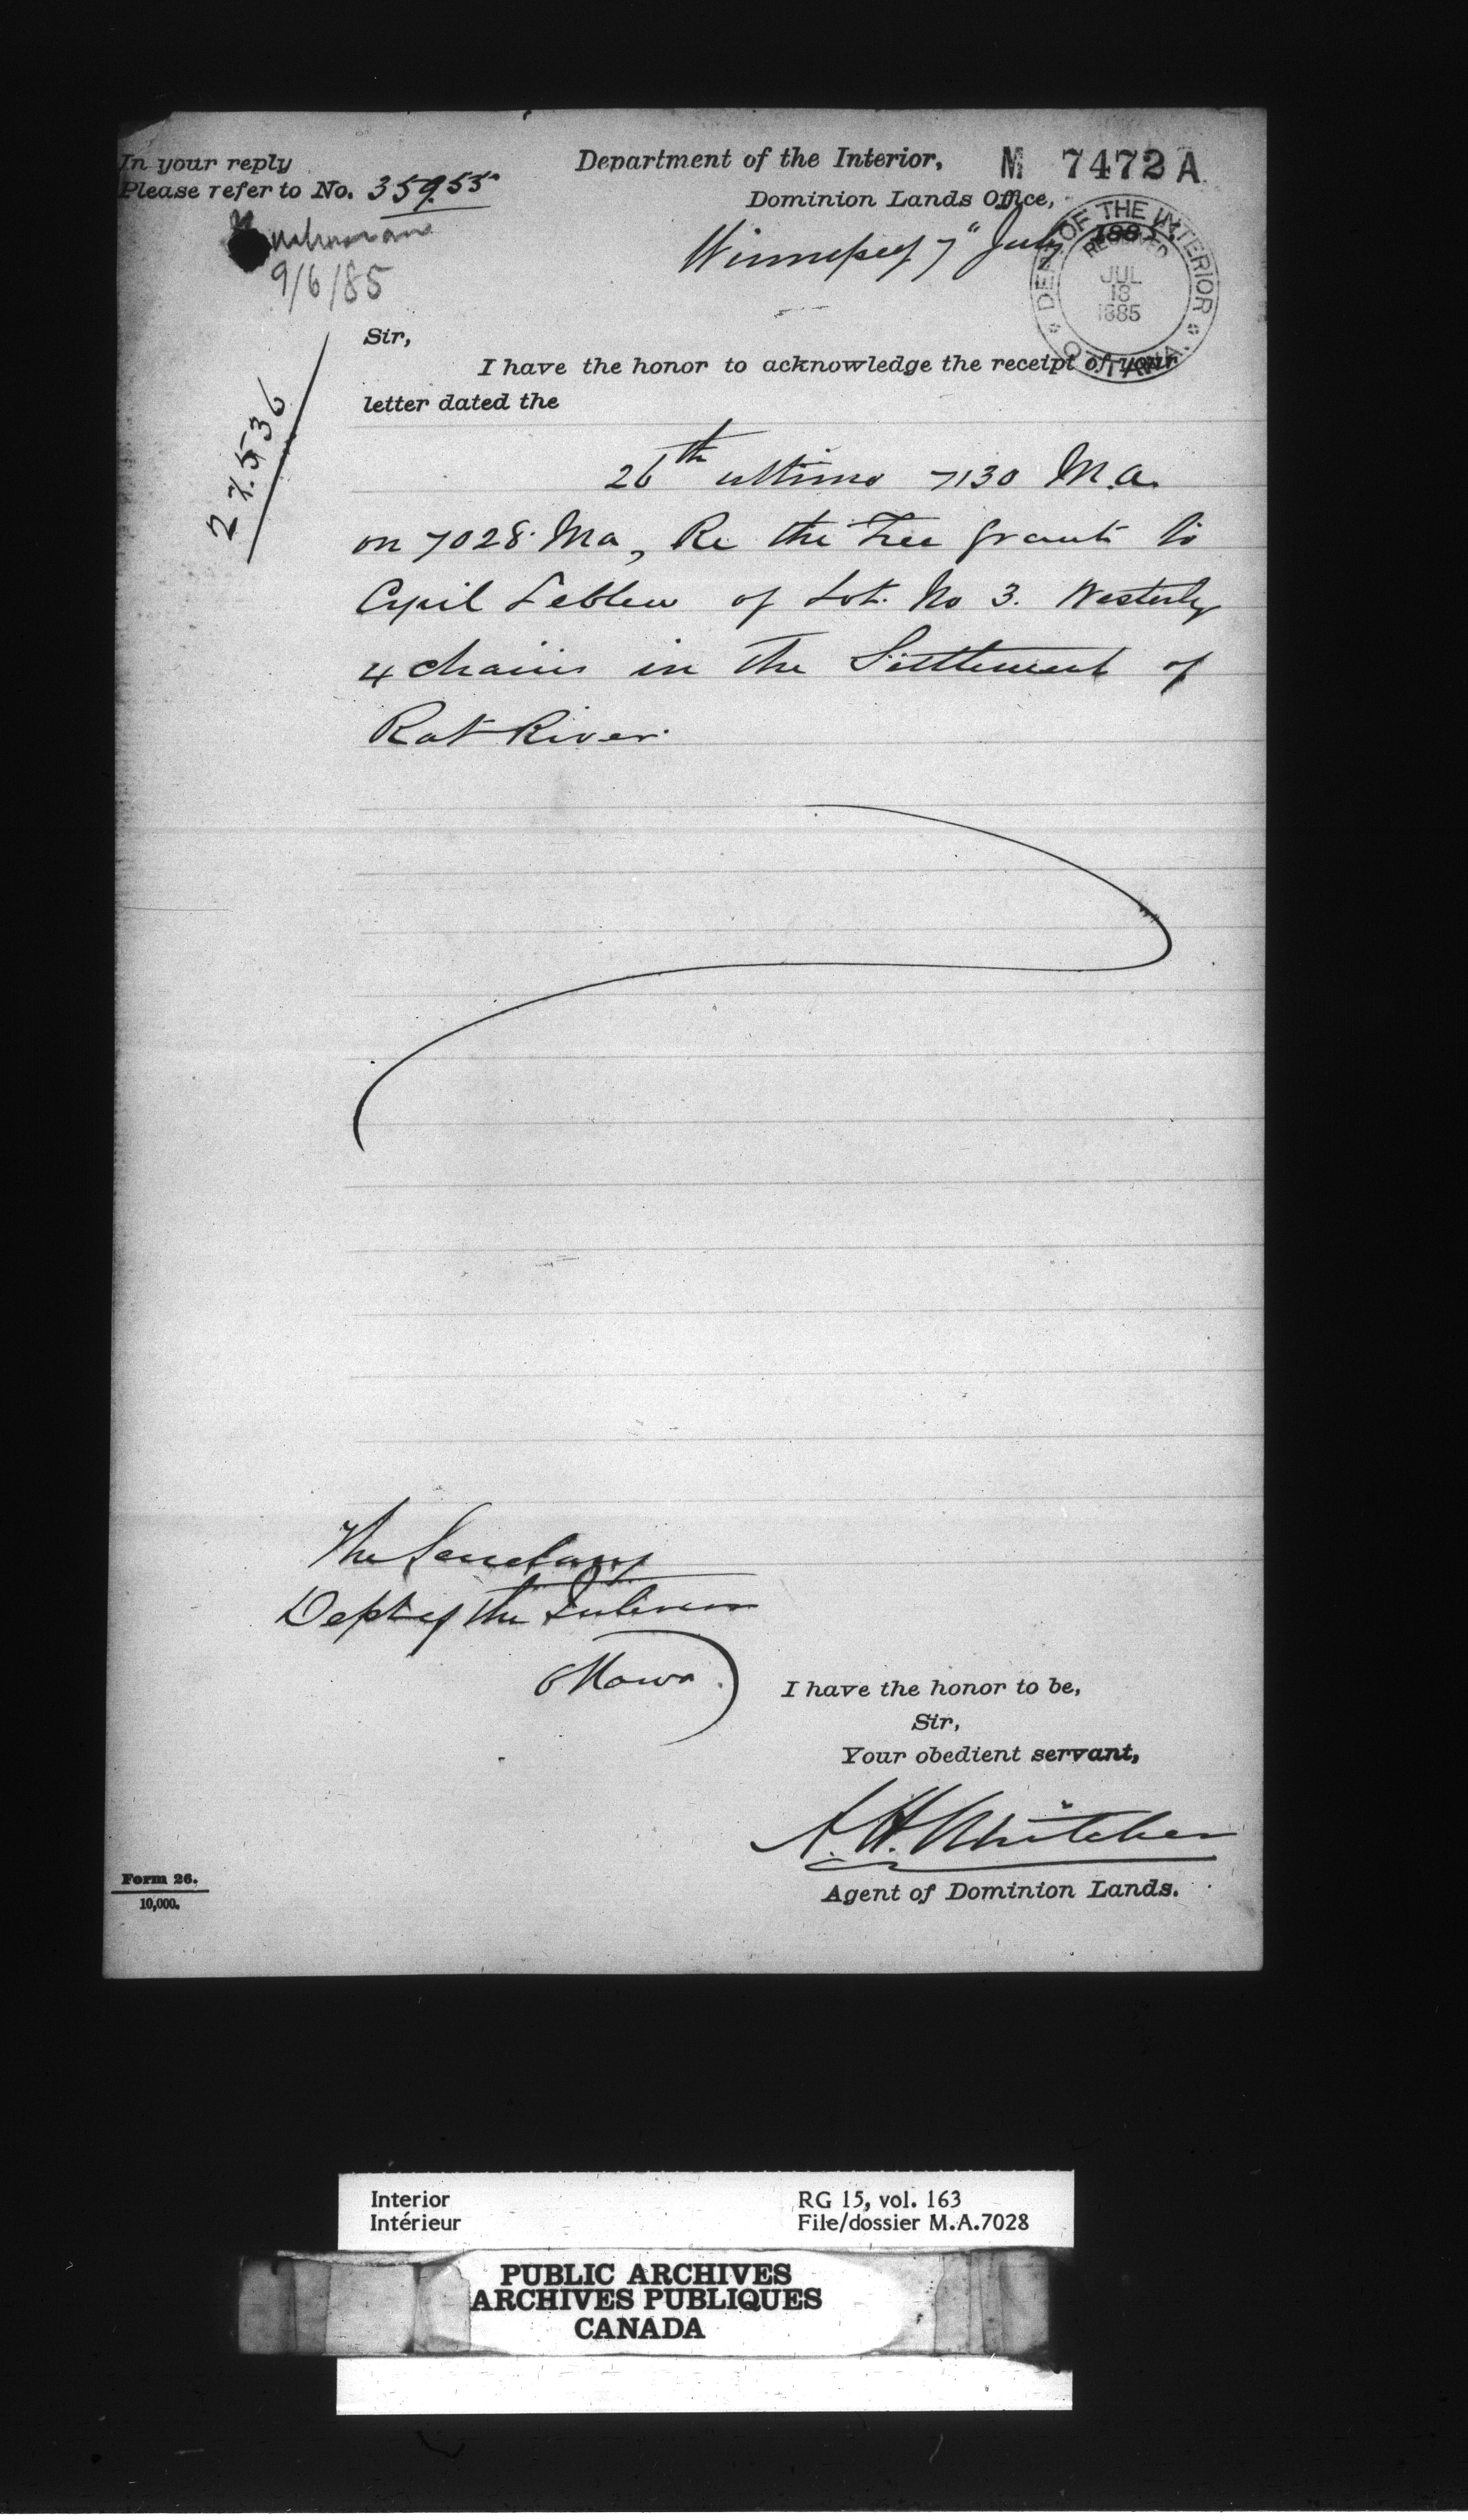 In your reply
Please refer to No. 35955
9/6/85
27536
Department of the Interior,
M 7472 A
Dominion Lands Office,
Winnipeg 7" July 1885
DEPT OF THE INTERIOR
RECEIVED
JUL
18
1885
OTTAWA
Sir,
I have the honor to acknowledge the receipt of your
letter dated the
26th ultimo 7130 M.a.
on 7028 Ma, Re the Free Grant to
of Lot. No 3. Westerly
4 chains in the Settlement of
Rat River.
The Secretary
Dept of the Interior
Ottawa
I have the honor to be,
Sir,
Your obedient servant,
A. H. Whitcher
Agent of Dominion Lands.
Form 26.
10,000.
Interior
Intérieur
RG 15, vol. 163
File/dossier M.A.7028
PUBLIC ARCHIVES
ARCHIVES PUBLIQUES
CANADA